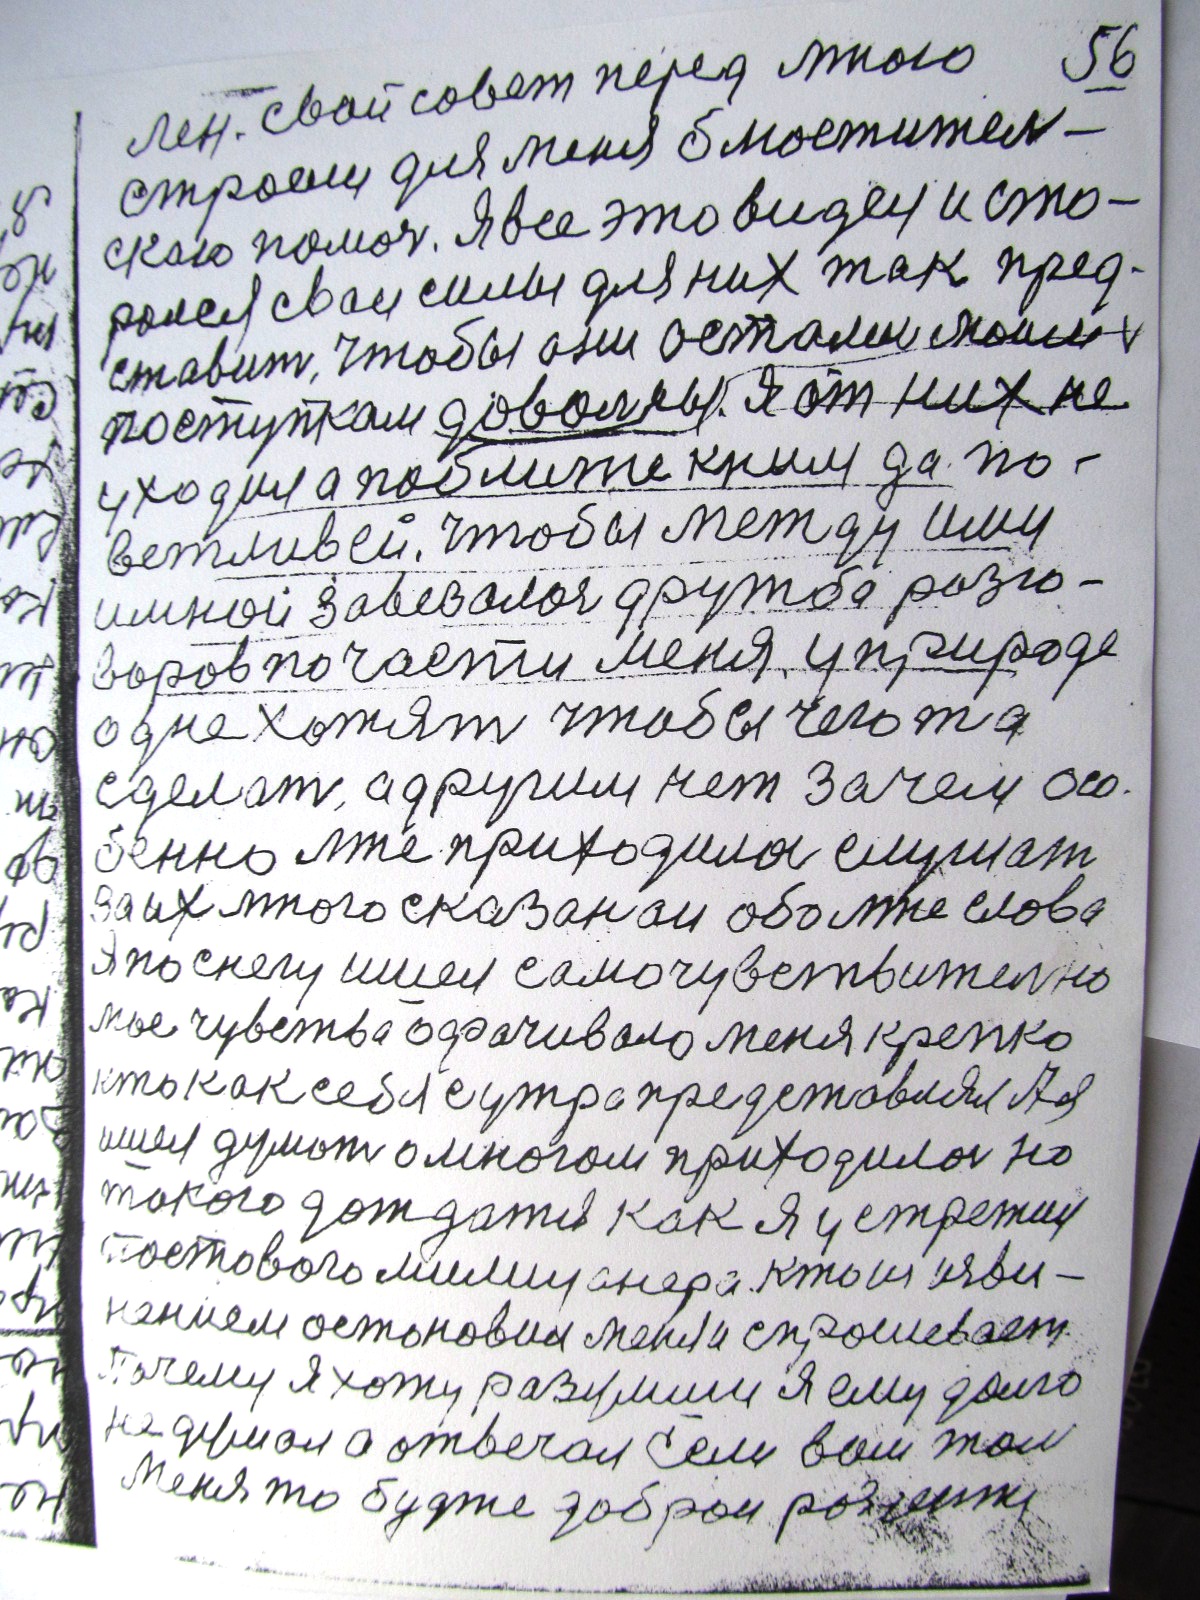 56
лен. свой совет перед мною
строели для меня бмостител-
скаю помоч. Я все это видел и сто-
ролся сваи силы для них так пред-
ставит, чтобы они осталис моим
поступкам доволны. Я от них не
уходил а поближе к ним да по-
ветливей. чтобы между ими
имной завезалоя дружба разго-
воров по части меня, у природе
одне хотят чтобы чегота
сделат, а другим нет зачем осо-
бенно мне приходилос слушат
за их много сказанаи обо мне слова
Я по снегу ишел самочувствително
мое чувства одрачивало меня крепко
кто как себя сутра представлял А я
ишел думат о многом приходилос но
такого дождатся как я устретил
постового милицанера. кто и изви-
нением остоновил меня и спрошевает
Почему я хожу разумши я ему долго
не думал а отвечал Если вам жал
Меня то будже добрым